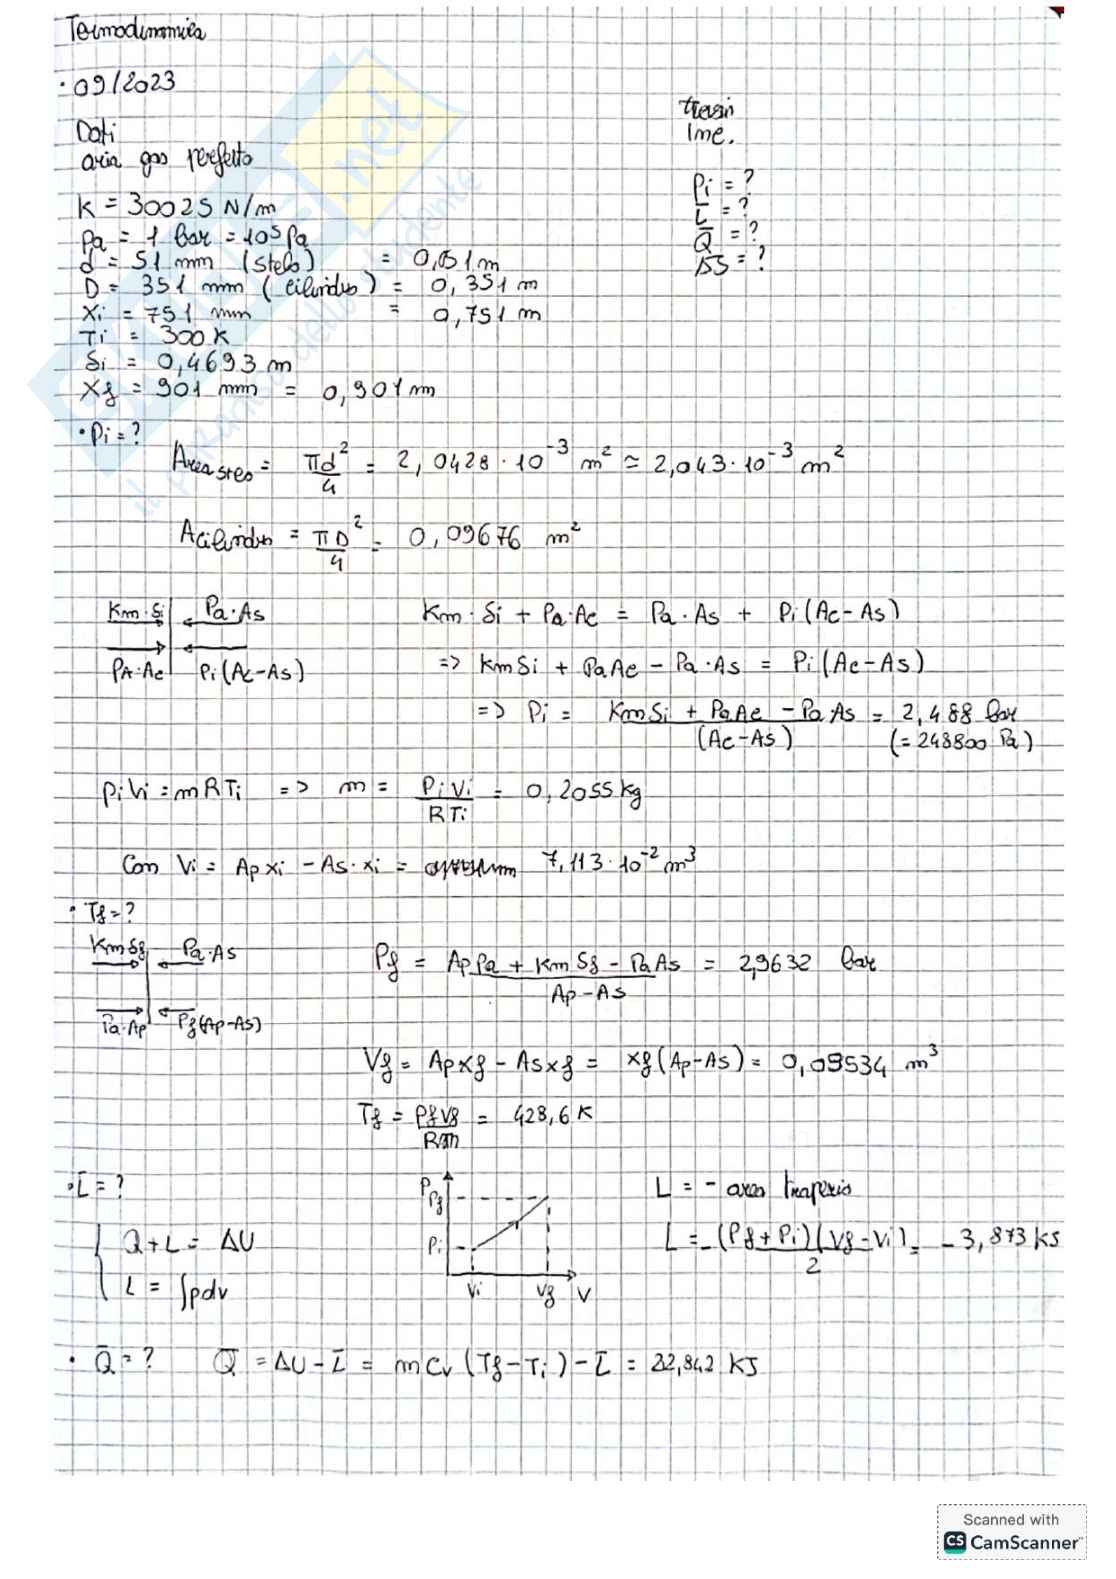 Termodinamica
• 09/2023
Dati
aria gas perfetto
K = 30025 N/m
Pa = 1 bar = 10⁵ Pa
d = 51 mm (stelo) = 0,051 m
D = 351 mm (cilindro) = 0,351 m
Xi = 751 mm = 0,751 m
Ti = 300 K
Si = 0,4693 m
Xf = 901 mm = 0,901 m
Pi = ?
L = ?
Q = ?
ΔS = ?
• Pi = ?
Area stelo = πd²/4 = 2,0428·10⁻³ m² ≃ 2,043·10⁻³ m²
Acilindro = πD²/4 = 0,09676 m²
Km·Si Pa·As
PA·Ac Pi(Ac-As)
Km·Si + Pa·Ac = Pa·As + Pi(Ac-As)
=> KmSi + PaAc - Pa·As = Pi(Ac-As)
=> Pi = KmSi + PaAc - PaAs / (Ac-As) = 2,488 bar
(= 248800 Pa)
PiVi = mRTi => m = PiVi / RTi = 0,2055 kg
Con Vi = Apxi - As·xi = 7,113·10⁻² m³
• Tf = ?
KmSf Pa·As
Pa·Ap Pf(Ap-As)
Pf = ApPa + KmSf - PaAs / Ap-As = 2,9632 bar
Vf = Apxf - Asxf = xf(Ap-As) = 0,08534 m³
Tf = PfVf / Rm = 428,6 K
• L = ?
Q+L = ΔU
L = ∫pdv
P
Pf
Pi
Vi Vf V
L = - area trapezio
L = -(Pf+Pi)(Vf-Vi) / 2 = -3,873 kJ
• Q = ? Q = ΔU - L = mCv(Tf-Ti) - L = 22,842 KJ
il paradiso dello studente
net
Scanned with
CS CamScanner